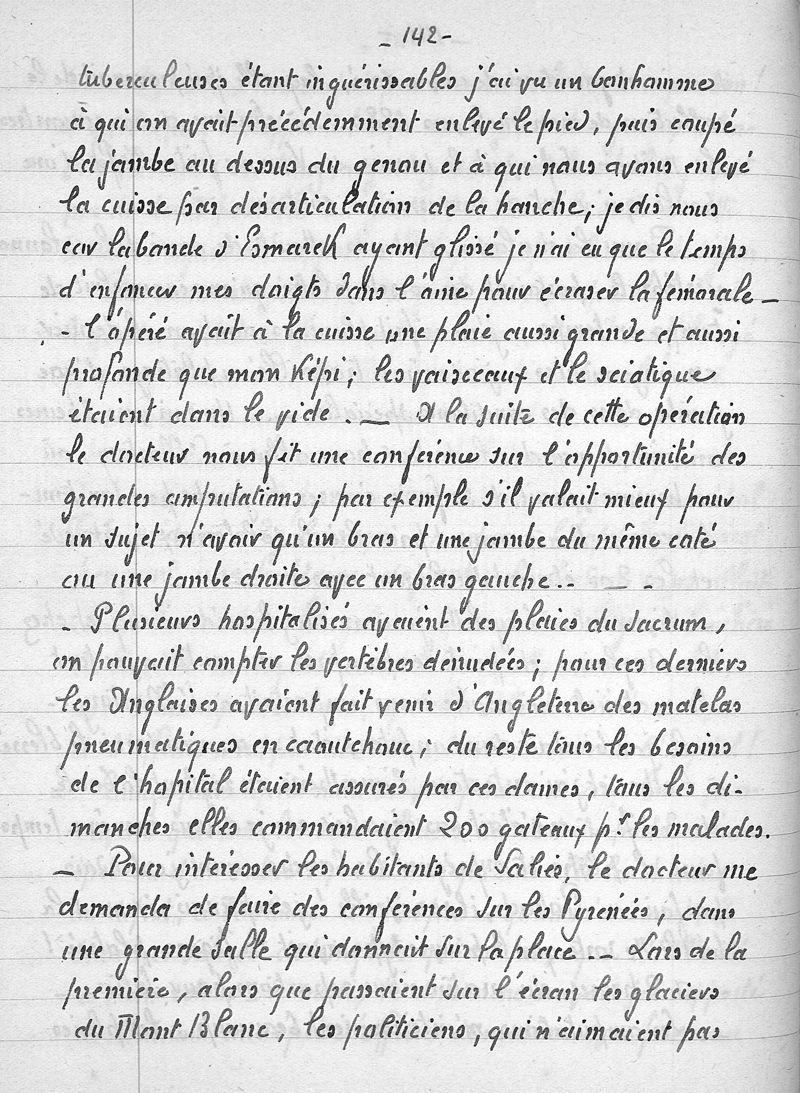 - 142 -
tuberculeuses étant inguérissables j'ai vu un bonhomme
à qui on avait précédemment enlevé le pied, puis coupé
la jambe au dessus du genou et à qui nous avons enlevé
la cuisse par désarticulation de la hanche; je dis nous
car la bande d'Esmarck ayant glissé je n'ai eu que le temps
d'enfoncer mes doigts dans l'aine pour écraser la fémorale _
- l'opéré avait à la cuisse une plaie aussi grande et aussi
profonde que mon Képi; les vaisceaux et le sciatique
étaient dans le vide. _ A la suite de cette opération
le docteur nous fit une conférence sur l'opportunité des
grandes amputations; par exemple s'il valait mieux pour
un sujet n'avoir qu'un bras et une jambe du même coté
ou une jambe droite avec un bras gauche.. _ -
- Plusieurs hospitalisés avaient des plaies du sacrum,
on pouvait compter les vertèbres dénudées; pour ces derniers
les Anglaises avaient fait venir d'Angleterre des matelas
pneumatiques en caoutchouc; du reste tous les besoins
de l'hopital étaient assurés par ces dames, tous les di-
manches elles commandaient 200 gateaux pr les malades.
_ Pour intéresser les habitants de Salies, le docteur me
demanda de faire des conférences sur les Pyrenées, dans
une grande salle qui donnait sur la place.-- Lors de la
première, alors que passaient sur l'écran les glaciers
du Mont Blanc, les politiciens, qui n'aimaient pas